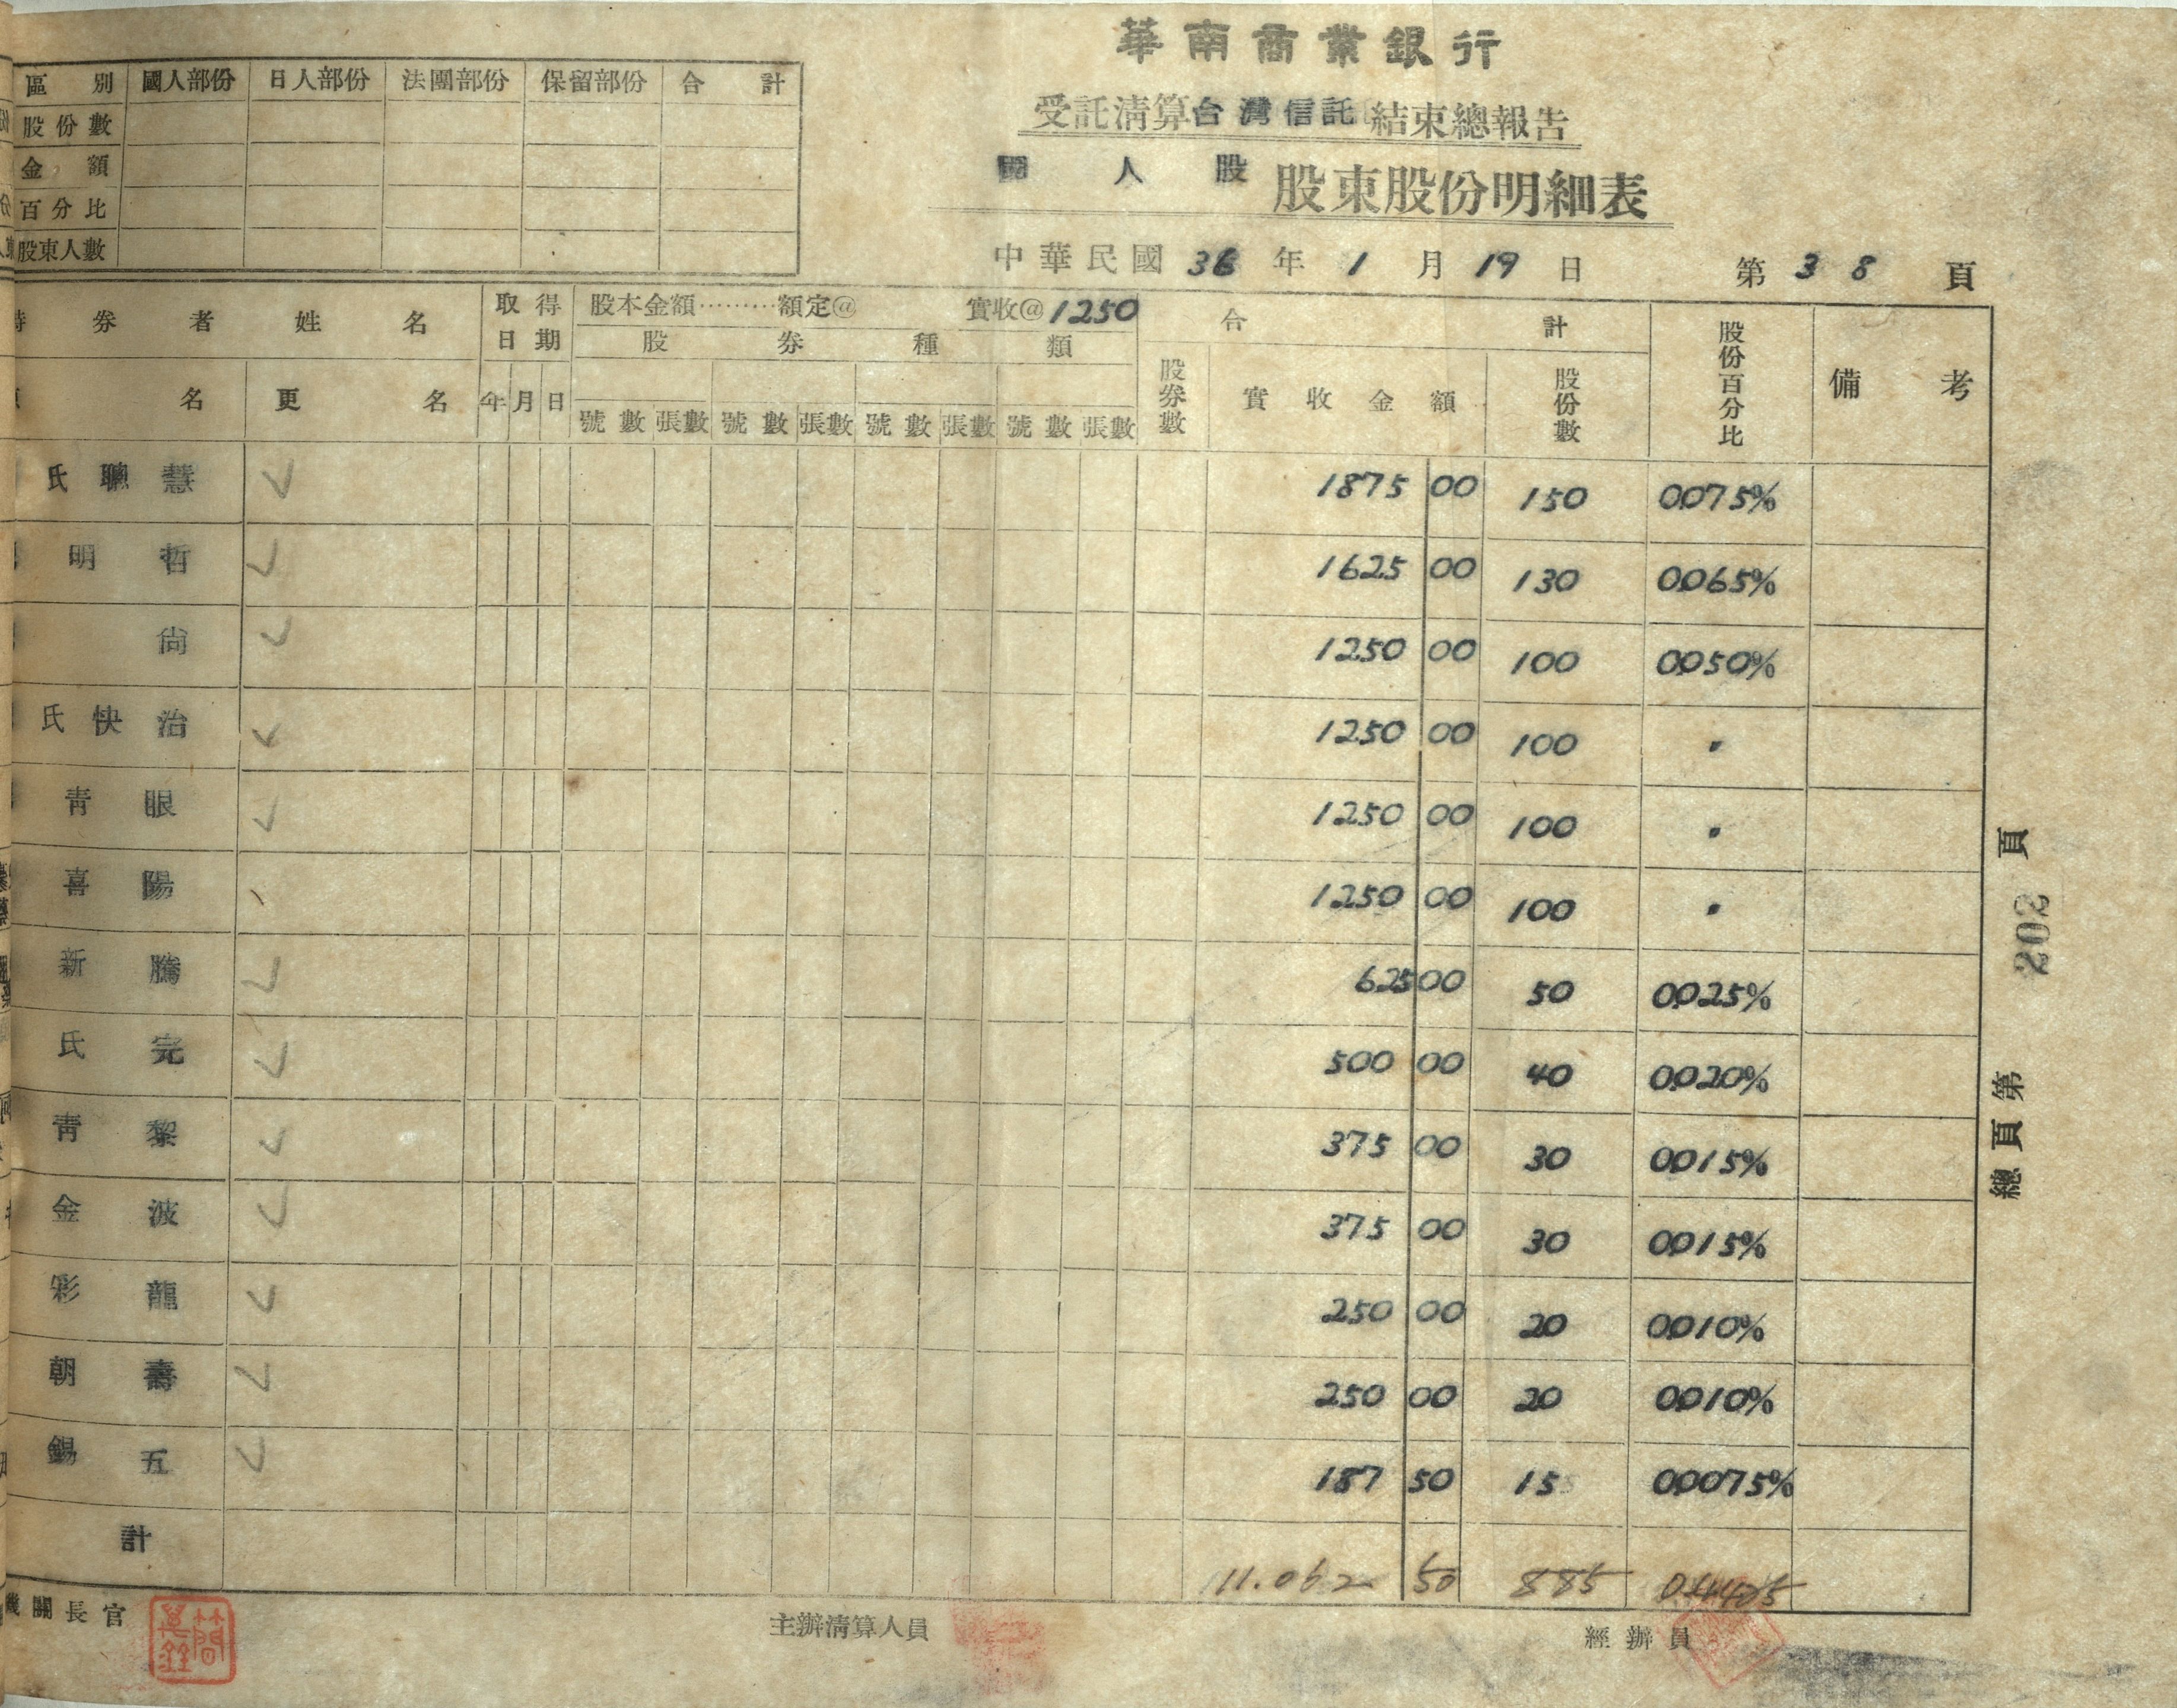 華南商業銀行
受託清算台灣信託結束總報告
國人股 股東股份明細表
中華民國 36 年 1 月 19 日 第 3 8 頁
區別 國人部份 日人部份 法團部份 保留部份 合計
股份數
金額
百分比
股東人數
券者姓名 取得日期 股本金額………額定@ 實收@1250 合計 股份百分比 備考
股券種類
名 更名 年 月 日 號數 張數 號數 張數 號數 張數 號數 張數 股券數 實收金額 股份數
氏聰慧 1875 00 150 0.075%
明哲 1625 00 130 0.065%
尙 1250 00 100 0.050%
氏快治 1250 00 100 〃
青眼 1250 00 100 〃
喜陽 1250 00 100 〃
新騰 625 00 50 0.025%
氏完 500 00 40 0.020%
青黎 375 00 30 0.015%
金波 375 00 30 0.015%
彩龍 250 00 20 0.010%
朝壽 250 00 20 0.010%
錫五 187 50 15 0.0075%
計 11.062 50 885 0.4425
機關長官 主辦清算人員 經辦員
總頁第 202 頁